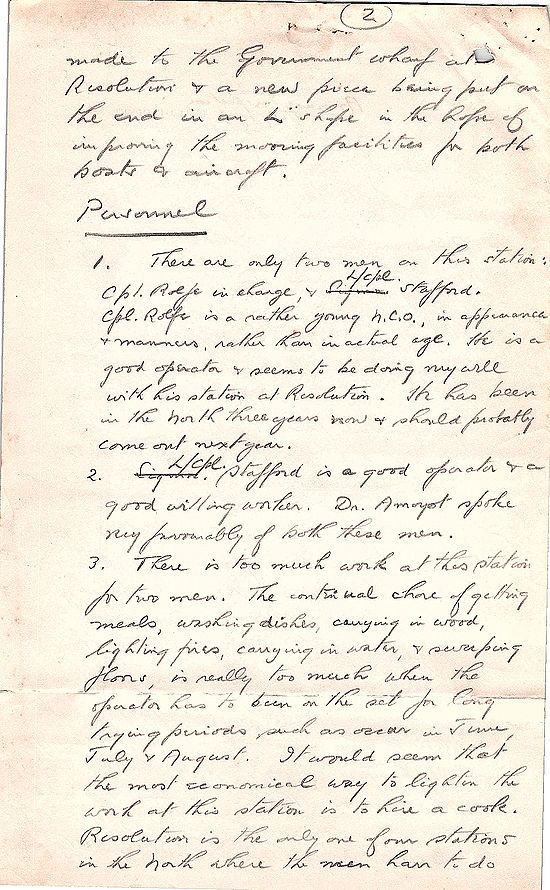 2
made to the Government wharf at
Resolution & a new piece being put on
the end in an L shape in the hope of
improving the mooring facilities for both
boats & aircraft.
Personnel
1. There are only two men on this station:
Cpl. Rolfe in charge, & L/Cpl. Stafford.
Cpl. Rolfe is a rather young N.C.O., in appearance
& manners, rather than in actual age. He is a
good operator & seems to be doing very well
with his station at Resolution. He has been
in the North three years now & should probably
come out next year.
2. L/Cpl. Stafford is a good operator & a
good willing worker. Dr. Amoyot spoke
very favourably of both these men.
3. There is too much work at this station
for two men. The continual chore of getting
meals, washing dishes, carrying in wood,
lighting fires, carrying in water, & sweeping
floors, is really too much when the
operator has to been on the set for long
trying periods, such as occur in June,
July & August. It would seem that
the most economical way to lighten the
work at this station is to hire a cook.
Resolution is the only one of our stations
in the North where the men have to do